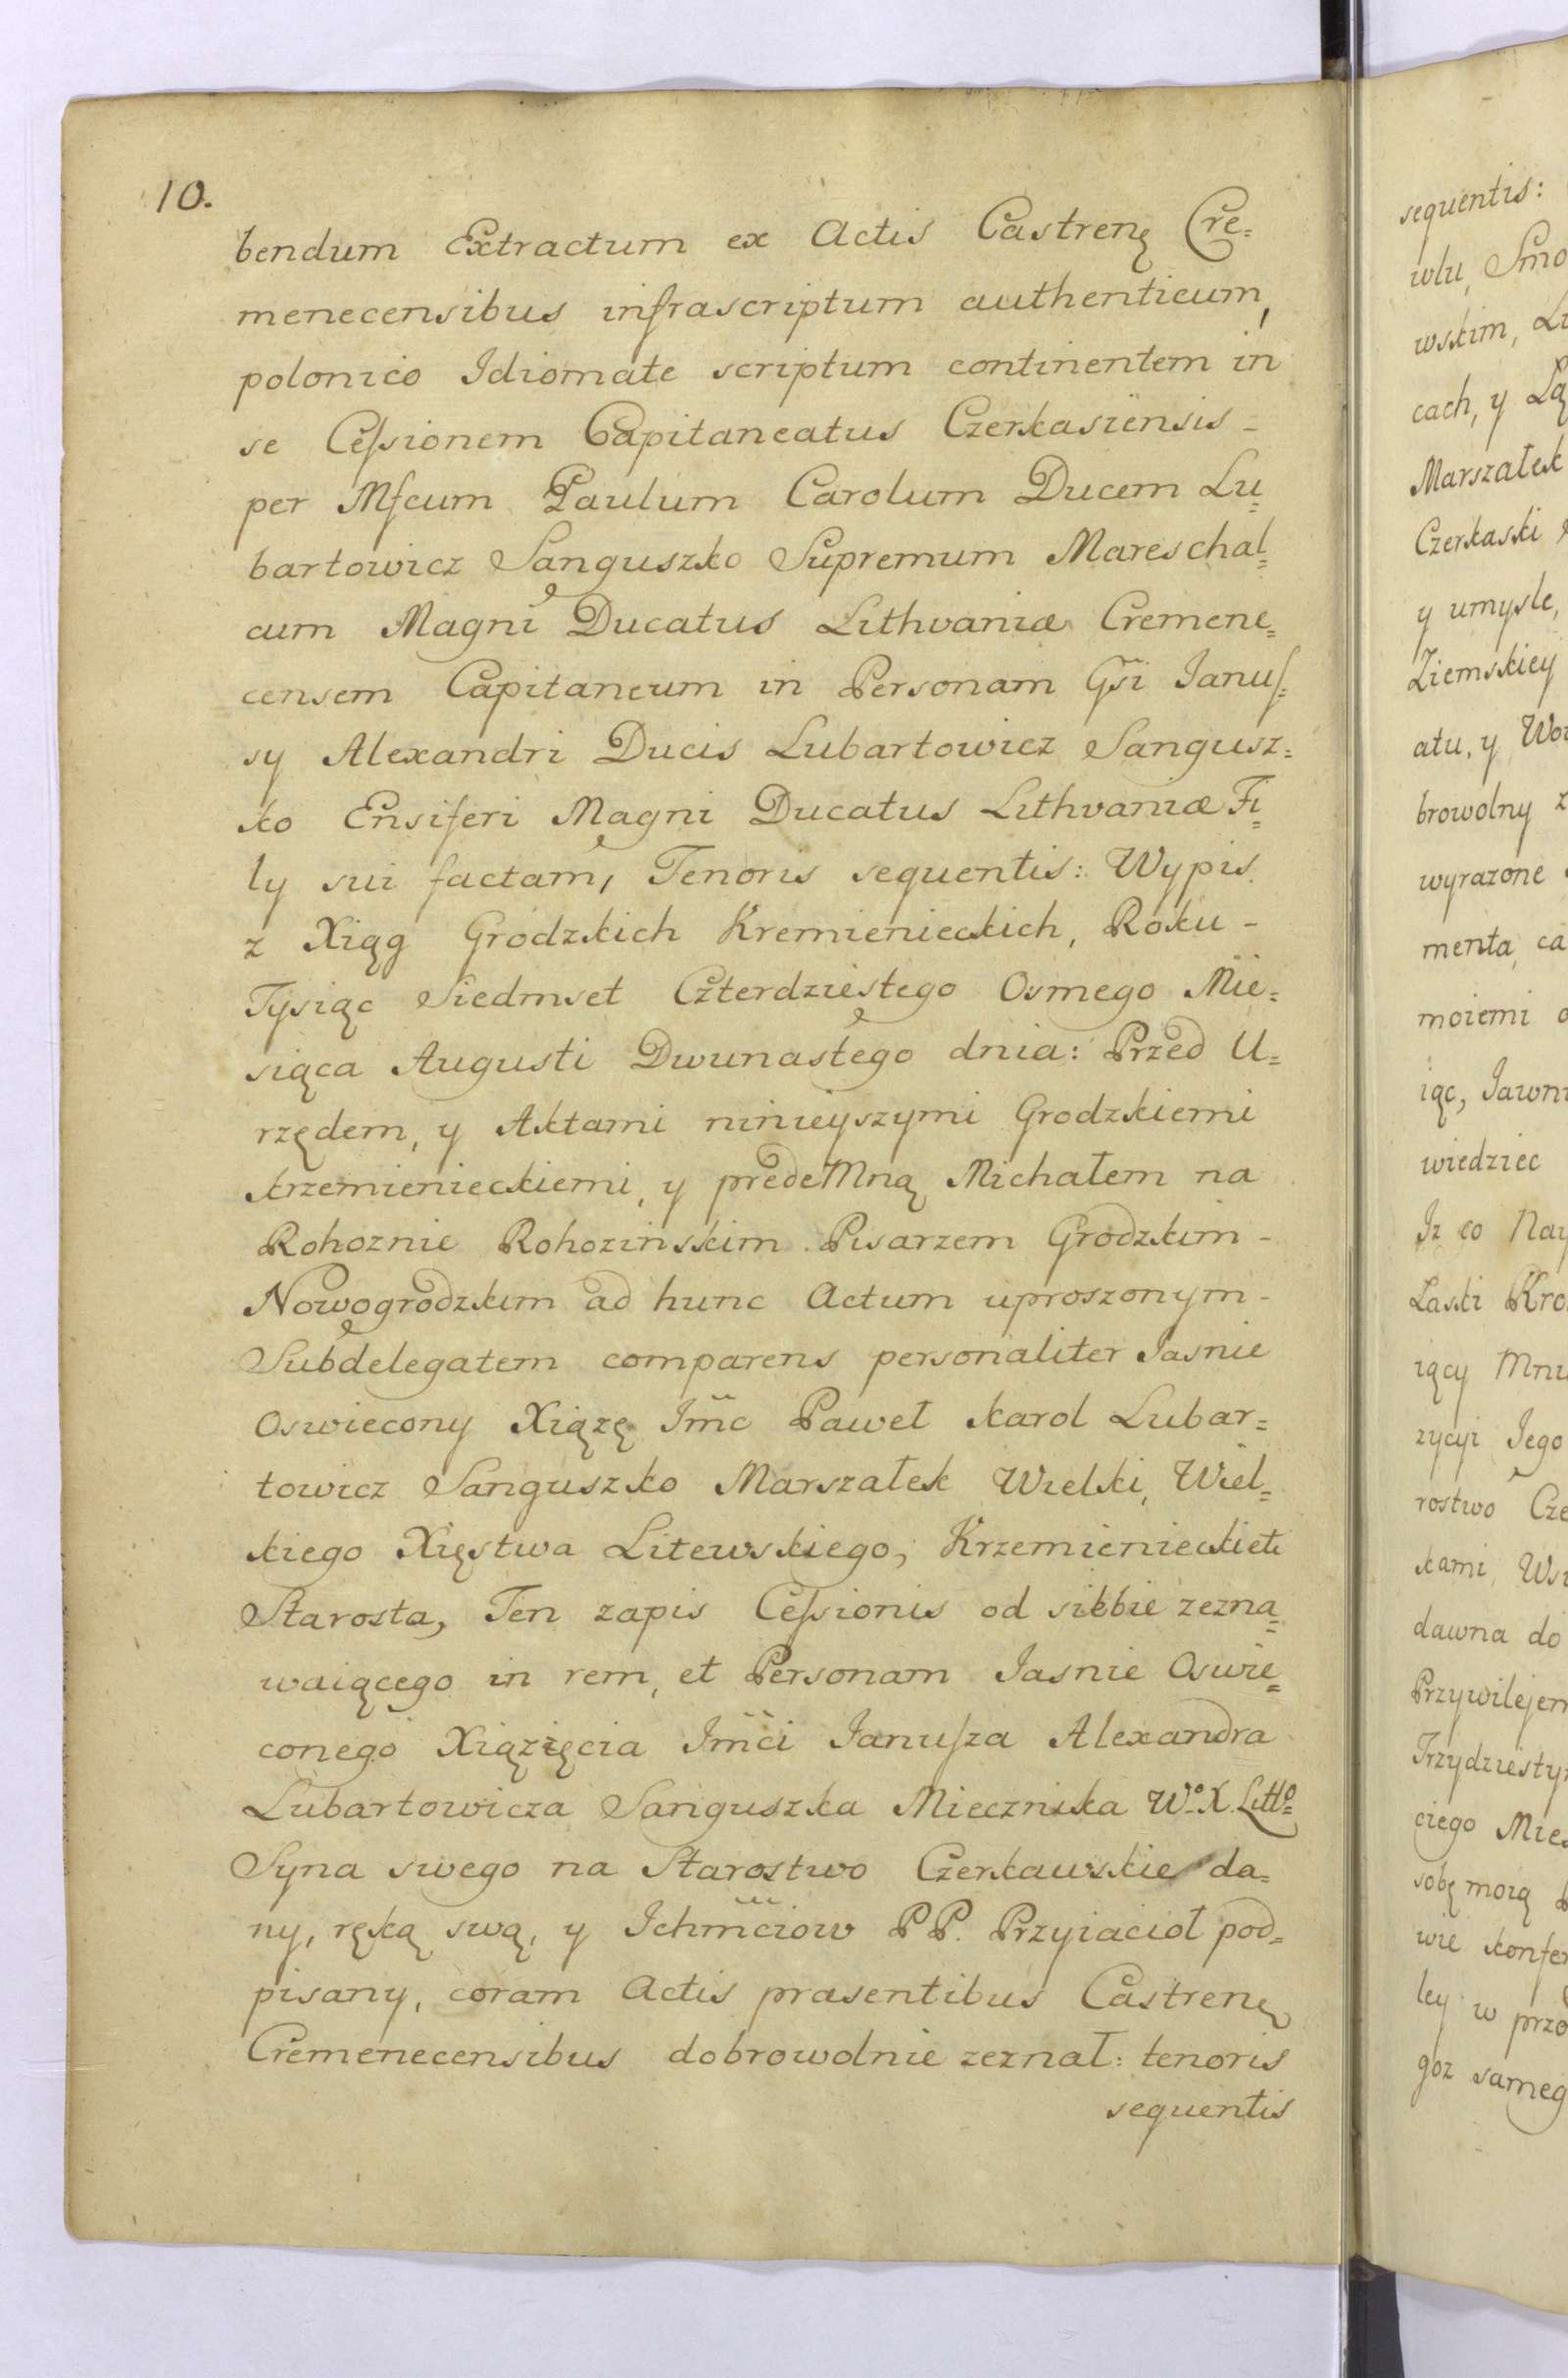 10.
bendum Extractum ex Actis Castrenę Cre=
menecensibus infrascriptum authenticum,
polonico Idiomate scriptum continentem in
se Ceſsionem Capitaneatus Czerkasiensis -
per Mfcum Paulum Carolum Ducem Lu=
bartowicz Sanguszko Supremum Mareschal=
cum Magni Ducatus Lithvaniæ Cremene=
censem Capitaneum in Personam Gsi Ianuſ=
sy Alexandri Ducis Lubartowicz Sangusz=
ko Ensiferi Magni Ducatus Lithvaniæ Fi=
ly sui factam, Tenoris sequentis: Wypis
z Xiąg Grodzkich Kremienieckich, Roku -
Tysiąc Siedmset Czterdziestego Osmego Mie=
siąca Augusti Dwunastego dnia: Przed U=
rzędem, y Aktami ninieyszymi Grodzkiemi
krzemienieckiemi, y predeMną Michałem na
Rohoznie Rohozinskim Pisarzem Grodzkim -
Nowogrodzkim ad hunc Actum uproszonym -
Subdelegatem comparens personaliter Iasnie
Oswiecony Xiązę Imc Paweł karol Lubar=
towicz Sanguszko Marszałek Wielki, Wiel=
kiego Xięstwa Litewskiego, Krzemienieckieti
Starosta, Ten zapis Ceſsionis od siebie zezna=
waiącego in rem, et Personam Iasnie Oswie=
conego Xiązięcia Imci Ianuſza Alexandra
Lubartowicza Sanguszka Miecznika Wº X. Littº
Syna swego na Starostwo Czerkawskie da=
ny, ręką swą, y Ichmciow PP. Przyiacioł pod=
pisany, coram Actis præsentibus Castrenę
Cremenecensibus dobrowolnie zeznał: tenoris
sequentis
sequentis:
wlu, Smo
wskim, Lu
cach, y Lą
Marszałek
Czerkaski
y umysle,
Ziemskiey
atu, y Wo
browolny z
wyrazone
menta, ca
moiemi o
iąc, Iawni
wiedziec
Iz co Nay
Laski Kro
iący Mni
zycyi Iego
rostwo Cze
kami, Ws
dawna do
Przywilejem
Trzydziesty
ciego Mies
sobę moią
wie konfer
ley w przo
goz sameg